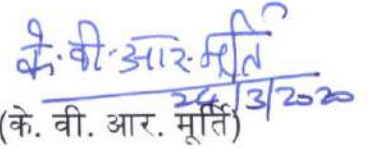 के. वी. आर. मूर्ति
24/3/2020
(के. वी. आर. मूर्ति)